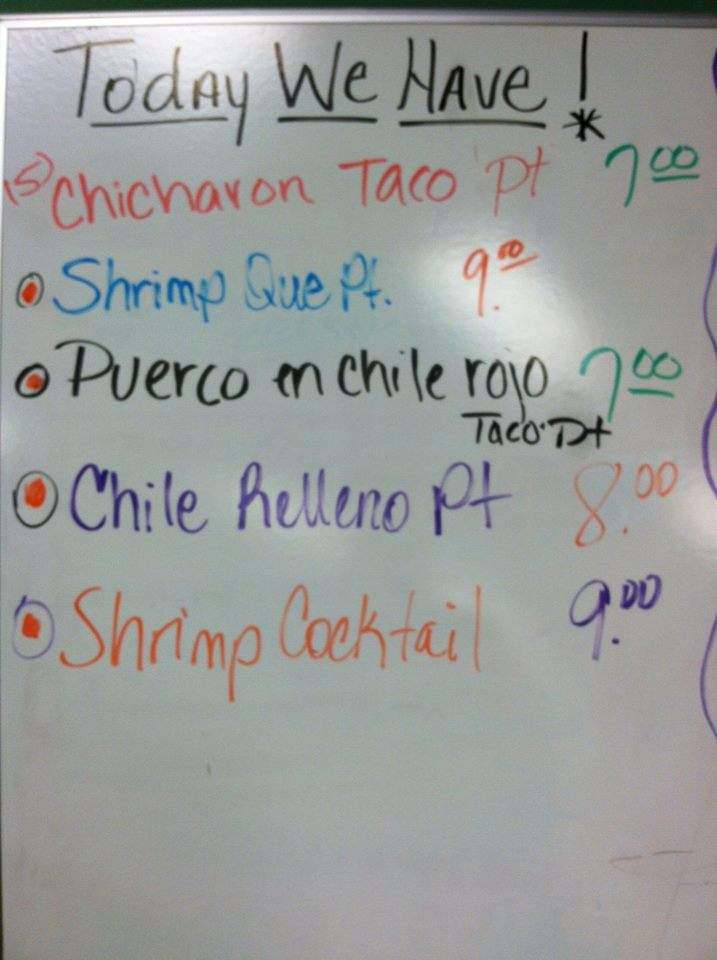 Today We Have!
*
(5) Chicharon Taco Pt 7.00
Shrimp Que Pt. 9.00
Puerco en chile rojo 7.00
Taco Pt
Chile Relleno Pt 8.00
Shrimp Cocktail 9.00